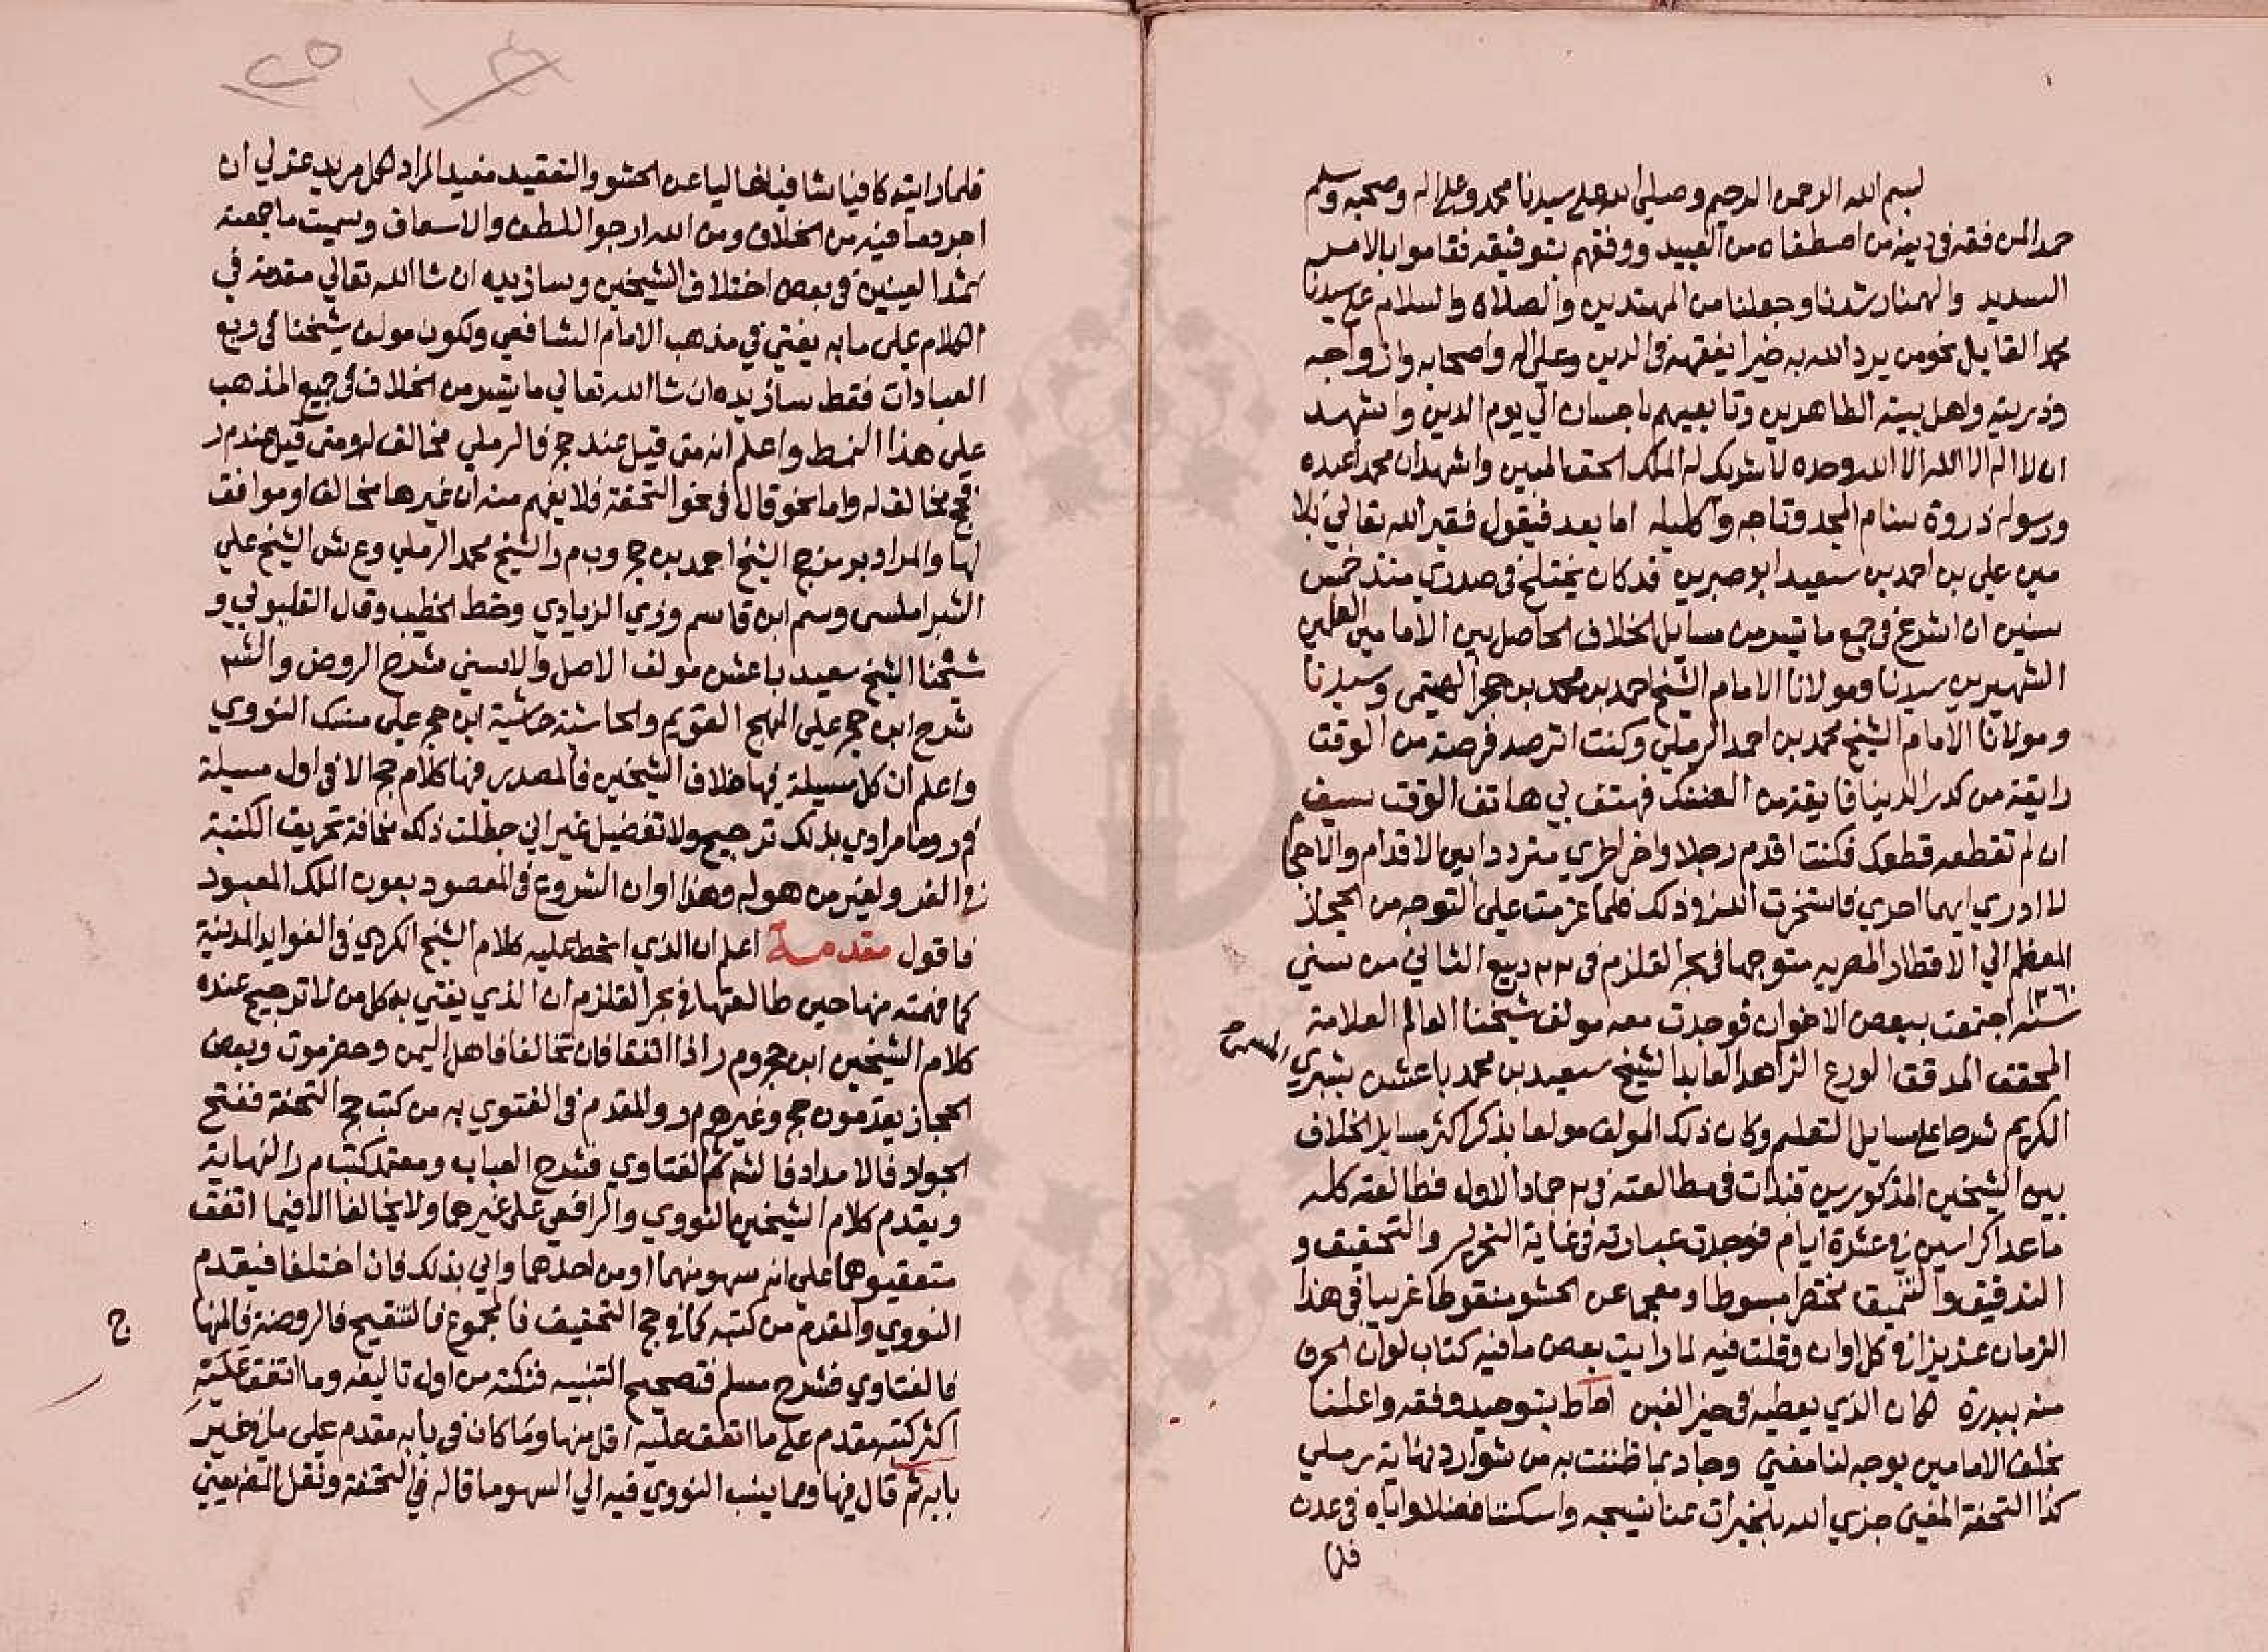 بسم الله الرحمن الرحيم وصلى الله على سيدنا محمد وعلى اله وصحبه وسلم
حمدا لمن فقه في دينه من اصطفاه من العبيد ووفقهم بتوفيقه فقاموا بالامر
السديد والهمنا رشدنا وجعلنا من المهتدين والصلاة والسلام على سيدنا
محمد القايل نحو من يرد الله به خيرا يفقهه في الدين وعلى اله واصحابه وازواجه
وذريته واهل بيته الطاهرين وتابعيهم باحسان الي يوم الدين واشهد
ان لا اله الا الله وحده لا شريك له الملك الحق المبين واشهد ان محمد اعبده
ورسوله ذروة سنام المجد وتاجه واكليله اما بعد فيقول فقير الله تعالي بلا
مين علي بن احمد بن سعيد ابو صبرين قد كان يختلج في صدري منذ خمس
سنين ان اشرع في جمع ما تيسر من مسايل الخلاف الحاصل بين الامامين العلمين
الشهيرين سيدنا ومولانا الامام الشيخ احمد بن محمد بن حجر الهيتمي وسيدنا
ومولانا الامام الشيخ محمد بن احمد الرملي وكنت اترصد فرصة من الوقت
رايقة من كدر الدنيا فايقة من الضنك فهتف بي هاتف الوقت سيف
ان لم تقطعه قطعك فكنت اقدم رجلا واخر اخري متردد ابين الاقدام والاحجا
لا ادري ايهما احري فاستخرت الله في ذلك فلما عزمت على التوجه من الحجاز
المعظم الي الاقطار المصريه متوجها في بحر القلزم في ٢٢ ربيع الثاني من سني
سنة ١٢٦٠ اجتمعت ببعض الاخوان فوجدت معه مولف شيخنا العالم العلامة
المحقق المدقق الورع الزاهد العابد الشيخ سعيد بن محمد باعشن بشري المسمى
الكريم شرحا على مسايل التعليم وكان ذلك المولف مولعا بذكر اكثر مسايل الخلاف
بين الشيخين المذكورين فبدات في مطالعته في ٢ جماد الاول فطالعته كله
ما عدا كراسين في عشرة ايام فوجدت عبارته في غاية التحرير والتحقيق و
التدقيق والتنميق مختصرا مبسوطا ومعجما عن الحشو منقوطا غريبا في هذا
الزمان عزيزا في كل اوان وقلت فيه لما رايت بعض ما فيه كتاب لو ان الحرف
منه ببدرة لكان الذي يعطيه في حيز الغبن احاط بتوحيد وفقه واعلنا
بخلف الامامين بوجه لنا مغني وجاد بما ظننت به من شوارد نهاية رملي
كذا التحفة المغني جزي الله بالخيرات عنا نسيجه واسكننا فضلا واياه في عدن
فلما
فلما رايته كافيا شافيا خاليا عن الحشو والتعقيد مفيد المراد لكل مريد عن لي ان
اجرد ما فيه من الخلاف ومن الله ارجو اللطف والاسعاف وسميت ما جمعته
اثمد العينين في بعض اختلاف الشيخين وسازيده ان شا الله تعالي مقدمة في
الكلام على ما به يفتي في مذهب الامام الشافعي ولكون مولف شيخنا في ربع
العبادات فقط سازيده ان شا الله تعالي ما يتيسر من الخلاف في جميع المذهب
على هذا النمط واعلم انه متى قيل عند حج فالرملي مخالف له ومتى قيل عند م ر
فحج مخالف له واما نحو قال في نحو التحفة فلا يفهم منه ان غيرها مخالف او موافق
لها والمراد برمز حج الشيخ احمد بن حجر وب م ر الشيخ محمد الرملي وع ش الشيخ علي
الشبراملسي وسم ابن قاسم وزي الزيادي وخط الخطيب وقال القليوبي و
شيخنا الشيخ سعيد باعشن مولف الاصل والاسني شرح الروض والشر
شرح ابن حجر على المنهج القويم والحاشية حاشية ابن حجر على منسك النووي
واعلم ان كل مسيلة فيها خلاف الشيخين فالمصدر فيها كلام حج الا في اول مسيلة
فم ر وما مرادي بذلك ترجيح ولا تفضيل غير اني جعلت ذلك مخافة تحريف الكتبة
وهذا اوان الشروع في المقصود بعون الملك المعبود
فاقول مقدمة اعلم ان الذي انحط عليه كلام الشيخ الكردي في الفوايد المدنية
كما فهمته منها حين طالعتها في بحر القلزم ان الذي يفتي به كل من لا ترجيح عنده
كلام الشيخين ابن حجر وم ر اذا اتفقا فان تخالفا فاهل اليمن وحضرموت وبعض
الحجاز يقدمون حج وغيرهم م ر والمقدم في الفتوي به من كتب حج التحفة ففتح
الجواد فالامداد فالشر ثم الفتاوي فشرح العباب ومعتمد كتب م ر النهاية
ويقدم كلام الشيخين النووي والرافعي على غيرهما ولا يخالفا الا فيما اتفق
متعقبوهما على انه سهو منهما او من احدهما واني بذلك فان اختلفا فيقدم
النووي والمقدم من كتبه كما في حج التحقيق فالمجموع فالتنقيح فالروضة فالمنها
ج
فالفتاوي فشرح مسلم فتصحيح التنبيه فنكته من اول تاليفه وما اتفق عليه
اكثر كتبه مقدم على ما اتفق عليه اقل منها وما كان في بابه مقدم على ما في غير
بابه ثم قال فيها ومما ينسب النووي فيه الي السهو ما قاله في التحفة ونقل